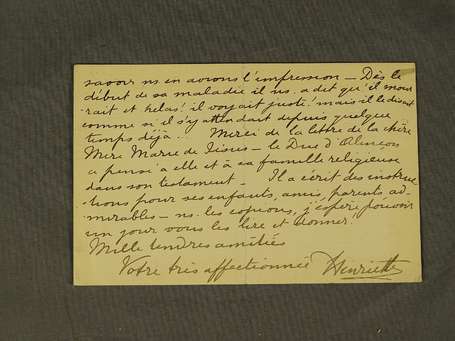 savoir ns en avions l'impression — Dès le
début de sa maladie il ns. a dit qu'il mour
rait et hélas! il voyait juste! mais il le disait
comme s'il s'y attendait depuis quelque
temps déjà. Merci de la lettre de la chère
Mère Marie de Jésus — le Duc d'Alençon
a pensé à elle et à sa famille religieuse
dans son testament. Il a écrit des instruc
tions pour ses enfants, amis, parents ad-
mirables — ns. les copions, j'espère pouvoir
un jour vous les lire et donner!
Mille tendres amitiés
Votre très affectionnée Henriette